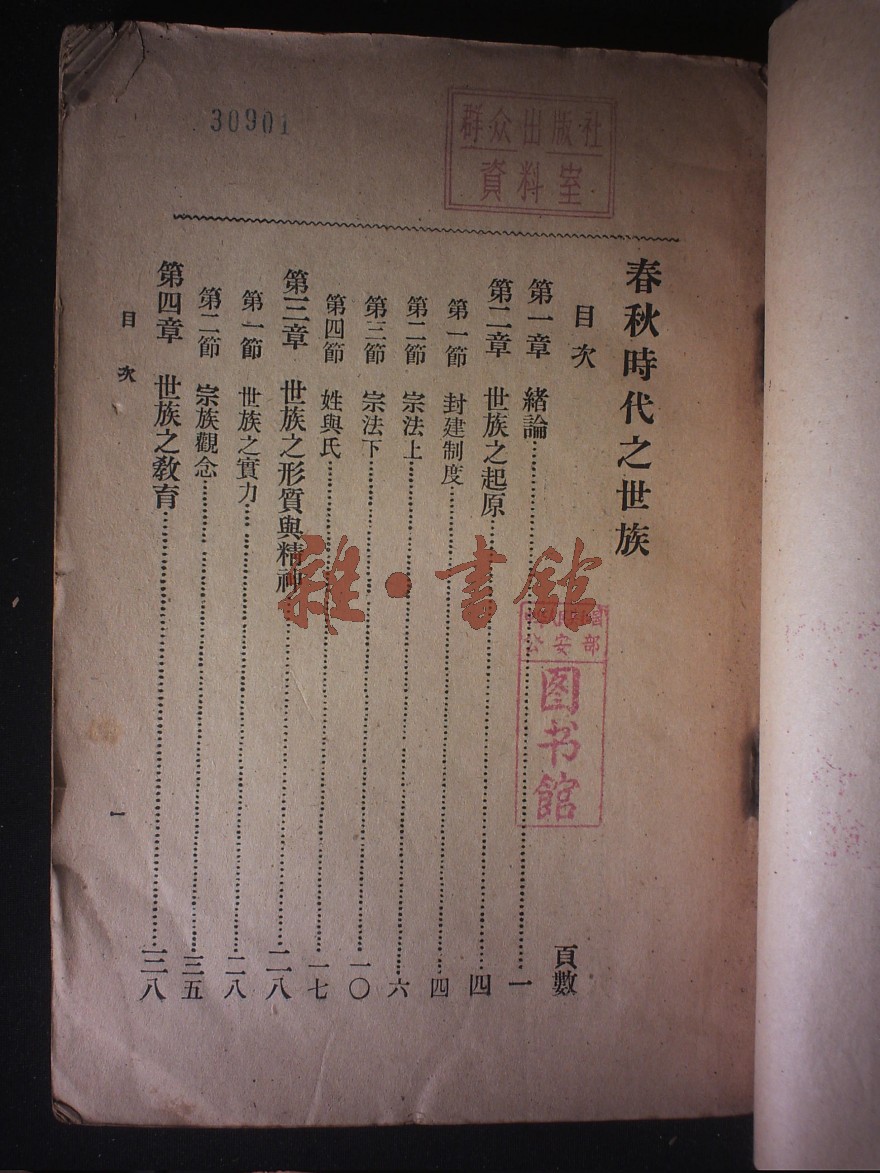 30901
群众出版社
資料室
春秋時代之世族
目次
頁數
第一章 緒論……一
第二章 世族之起原……四
第一節 封建制度……四
第二節 宗法上……六
第三節 宗法下……一〇
第四節 姓與氏……一七
第三章 世族之形質與精神……二八
第一節 世族之實力……二八
第二節 宗族觀念……三五
第四章 世族之教育……三八
目次
一
雜·書館
公安部
图书馆